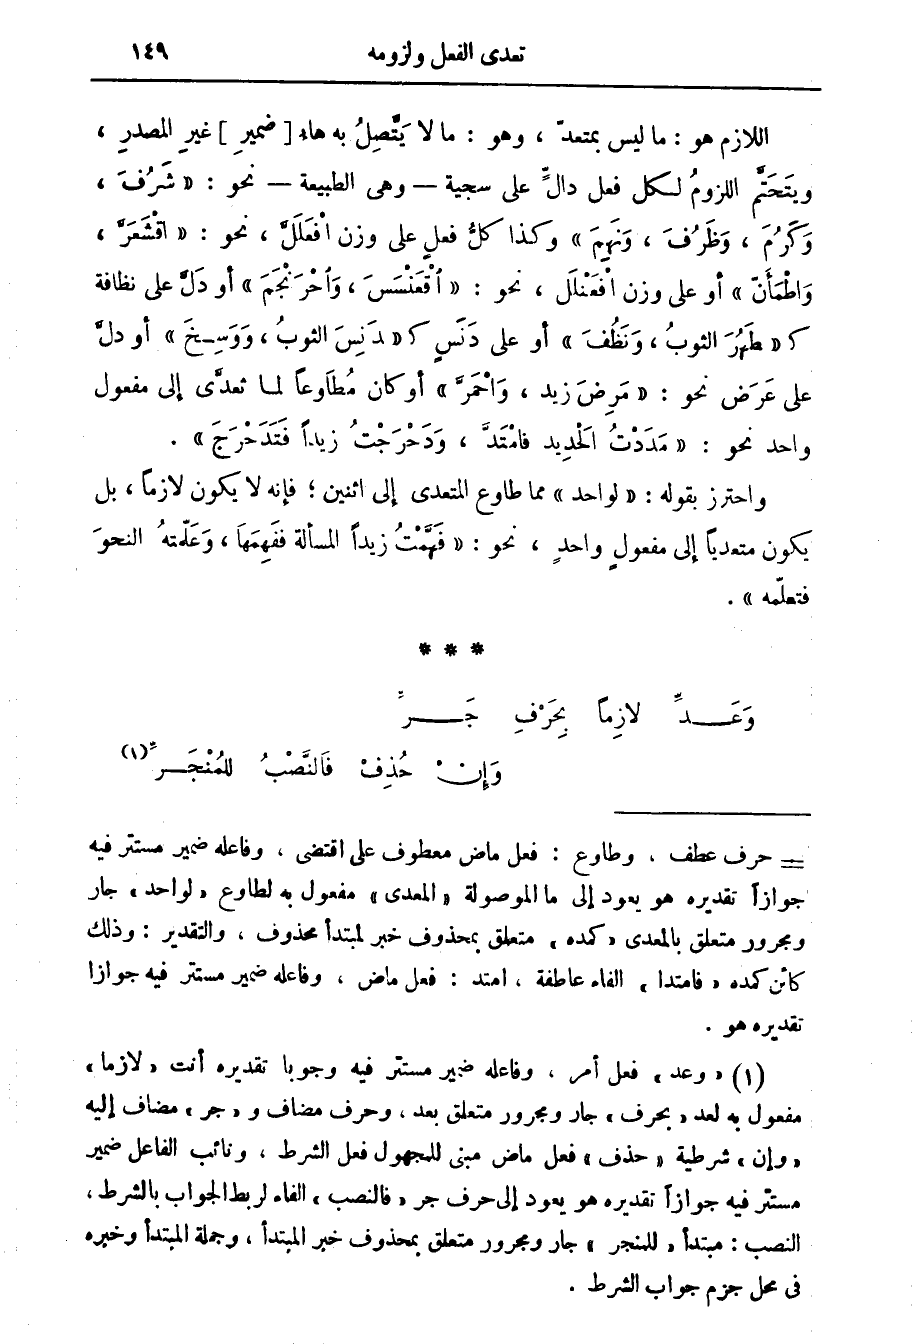 تعدى الفعل ولزومه ١٤٩
اللازم هو : ما ليس بمتعدّ ، وهو : ما لا يَتَّصِلُ به هاء [ ضميرِ ] غيرِ المصدرِ ،
ويَتَحَتَّم اللزومُ لكل فعل دالٍّ على سجية — وهى الطبيعة — نحو : « شَرُفَ ،
وَكَرُمَ ، وَظَرُفَ ، وَنَهِمَ » وكذا كلُّ فعلٍ على وزن افْعَلَلَّ ، نحو : « اقْشَعَرَّ ،
وَاطْمَأَنّ » أو على وزن افْعَنْلَل ، نحو : « اُقْعَنْسَسَ ، وَاُحْرَنْجَمَ » أو دَلَّ على نظافة
كـ « طَهُرَ الثوبُ ، وَنَظُفَ » أو على دَنَسٍ كـ « دَنِسَ الثوبُ ، وَوَسِخَ » أو دلَّ
على عَرَض نحو : « مَرِضَ زيد ، وَاحْمَرَّ » أو كان مُطَاوعاً لما تعدَّى إلى مفعول
واحد نحو : « مَدَدْتُ الَحْديد فامْتَدَّ ، وَدَحْرَجْتُ زيداً فَتَدَحْرَجَ » .
واحترز بقوله : « لواحد » مما طاوع المتعدى إلى اثنين ؛ فإنه لا يكون لازماً ، بل
يكون متعدياً إلى مفعولٍ واحدٍ ، نحو : « فَهَّمْتُ زيداً المسألة ففَهِمَهَا ، وَعَلّمتهُ النحوَ
فتعلّمه » .
* * *
وَعَـــدِّ لازِماً بِحَرْفِ جَـــرِّ
وَإِنْ حُذِفْ فَالنَّصْبُ لِلْمُنْجَـــرِّ (١)
= حرف عطف ، وطاوع : فعل ماض معطوف على اقتضى ، وفاعله ضمير مستتر فيه
جوازاً تقديره هو يعود إلى ما الموصولة « المعدى » مفعول به لطاوع « لواحد » جار
ومجرور متعلق بالمعدى « كمده » متعلق بمحذوف خبر لمبتدأ محذوف ، والتقدير : وذلك
كائن كمده « فامتدا » الفاء عاطفة ، امتد : فعل ماض ، وفاعله ضمير مستتر فيه جوازا
تقديره هو .
(١) « وعد » فعل أمر ، وفاعله ضمير مستتر فيه وجوبا تقديره أنت « لازما »
مفعول به لعد « بحرف » جار ومجرور متعلق بعد ، وحرف مضاف و « جر » مضاف إليه
« وإن » شرطية « حذف » فعل ماض مبنى للمجهول فعل الشرط ، ونائب الفاعل ضمير
مستتر فيه جوازاً تقديره هو يعود إلى حرف جر « فالنصب » الفاء لربط الجواب بالشرط ،
النصب : مبتدأ « للمنجر » جار ومجرور متعلق بمحذوف خبر المبتدأ ، وجملة المبتدأ وخبره
فى محل جزم جواب الشرط .